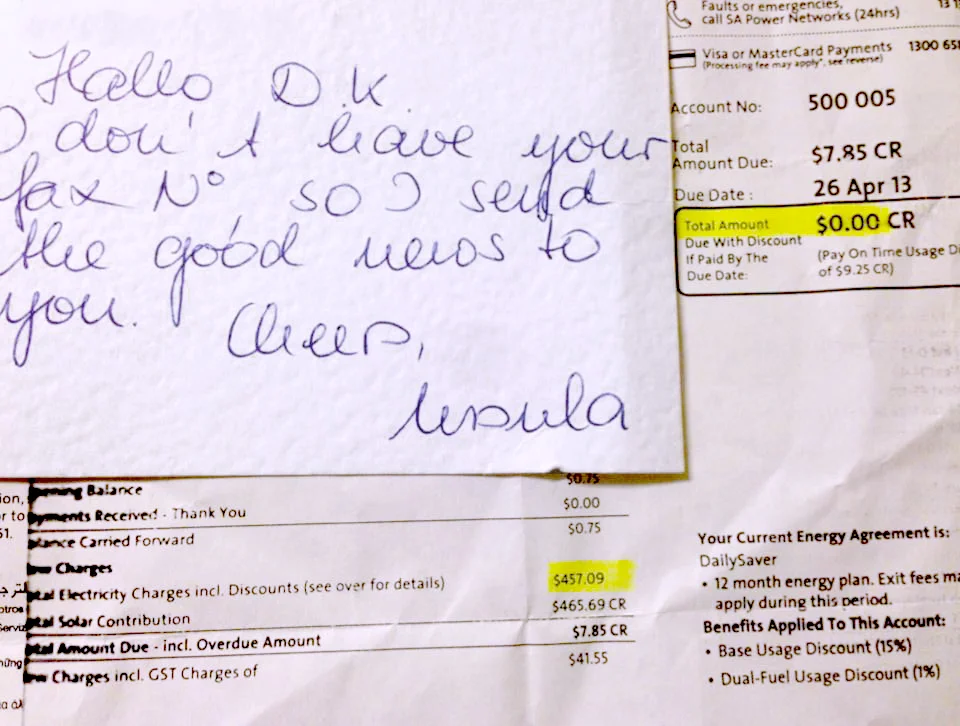 Hallo D.K.
I don't have your
fax N° so I send
the good news to
you.
Cheers,
Ursula
Faults or emergencies,
call SA Power Networks (24hrs)
Visa or MasterCard Payments 1300 658
(Processing fee may apply*, see reverse)
Account No: 500 005
Total
Amount Due: $7.85 CR
Due Date : 26 Apr 13
Total Amount $0.00 CR
Due With Discount
If Paid By The (Pay On Time Usage Di
Due Date: of $9.25 CR)
pening Balance $0.75
yments Received - Thank You $0.00
lance Carried Forward $0.75
ew Charges
tal Electricity Charges incl. Discounts (see over for details) $457.09
tal Solar Contribution $465.69 CR
tal Amount Due - incl. Overdue Amount $7.85 CR
ew Charges incl. GST Charges of $41.55
Your Current Energy Agreement is:
DailySaver
• 12 month energy plan. Exit fees ma
apply during this period.
Benefits Applied To This Account:
• Base Usage Discount (15%)
• Dual-Fuel Usage Discount (1%)